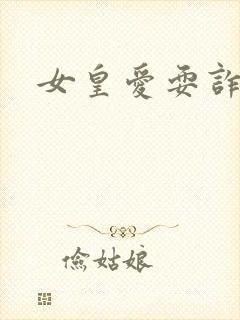 女皇愛耍詐
儉姑娘